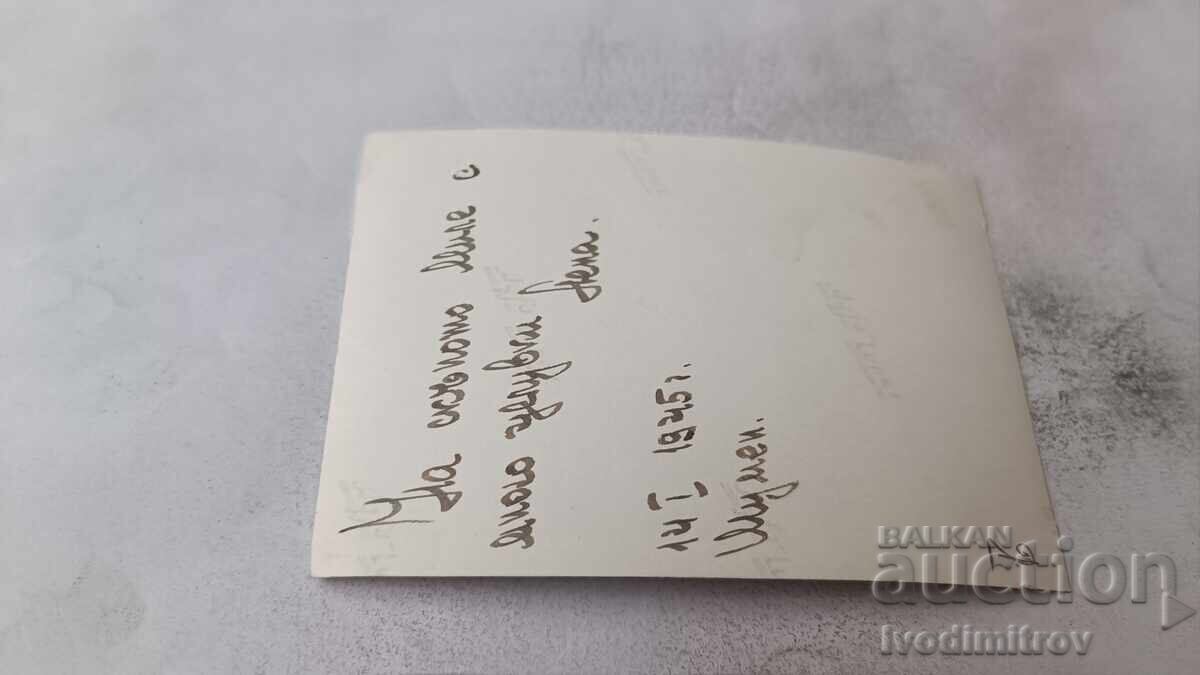 На скъпото Миле с
много целувки Лена.
14 I 1945 г.
Шумен.
BALKAN
auction
Ivodimitrov